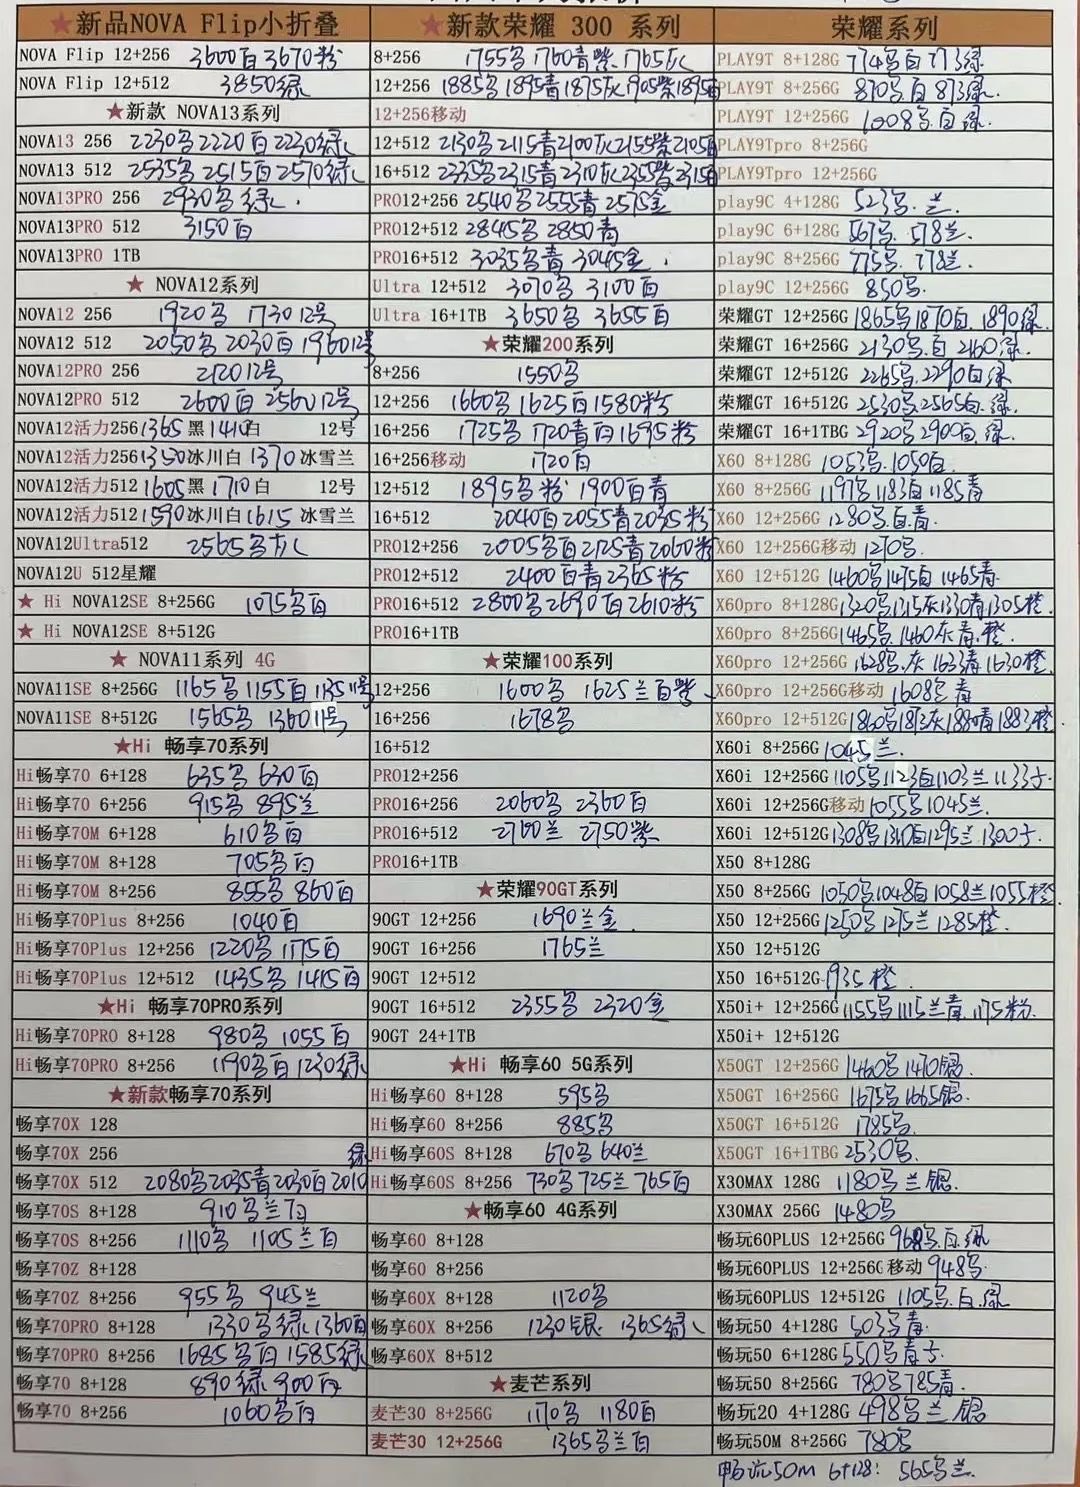 ★新品NOVA Flip小折叠
NOVA Flip 12+256 3600白3670粉
NOVA Flip 12+512 3850绿
★新款 NOVA13系列
NOVA13 256 2230黑2220白2230绿
NOVA13 512 2535黑2515白2570绿
NOVA13PRO 256 2930黑绿.
NOVA13PRO 512 3150白
NOVA13PRO 1TB
★ NOVA12系列
NOVA12 256 1920黑 1730 12号
NOVA12 512 2050黑2030白1960 12号
NOVA12PRO 256 2120 12号
NOVA12PRO 512 2600白2560 12号
NOVA12活力256 1365黑1410白 12号
NOVA12活力256 1350冰川白1370冰雪兰
NOVA12活力512 1605黑1710白 12号
NOVA12活力512 1590冰川白1615冰雪兰
NOVA12Ultra512 2565黑灰
NOVA12U 512星耀
★ Hi NOVA12SE 8+256G 1075黑白
★ Hi NOVA12SE 8+512G
★ NOVA11系列 4G
NOVA11SE 8+256G 1165黑1155白1135 11号
NOVA11SE 8+512G 1565黑 1360 11号
★Hi 畅享70系列
Hi畅享70 6+128 635黑630白
Hi畅享70 6+256 915黑 895兰
Hi畅享70M 6+128 610黑白
Hi畅享70M 8+128 705黑白
Hi畅享70M 8+256 855黑860白
Hi畅享70Plus 8+256 1040白
Hi畅享70Plus 12+256 1220黑1175白
Hi畅享70Plus 12+512 1435黑1415白
★Hi 畅享70PRO系列
Hi畅享70PRO 8+128 980黑 1055白
Hi畅享70PRO 8+256 1190黑白1230绿
★新款畅享70系列
畅享70X 128
畅享70X 256
畅享70X 512 2080黑2035青2030白2010绿
畅享70S 8+128 910黑兰白
畅享70S 8+256 1110黑 1105兰白
畅享70Z 8+128
畅享70Z 8+256 955黑945兰
畅享70PRO 8+128 1330黑绿1360白
畅享70PRO 8+256 1685黑白1585绿
畅享70 8+128 890绿900白
畅享70 8+256 1060黑白
★新款荣耀 300 系列
8+256 1755黑1760青紫1765灰
12+256 1885黑1895青1875灰1905紫1895白
12+256移动
12+512 2130黑2115青2100灰2155紫2105白
16+512 2335黑2315青2310灰2355紫2315白
PRO12+256 2540黑2555青2575金
PRO12+512 2845黑2850青
PRO16+512 3035黑青3045金.
Ultra 12+512 3070黑3100白
Ultra 16+1TB 3650黑3655白
★荣耀200系列
8+256 1550黑
12+256 1660黑1625白1580粉
16+256 1725黑1720青白1695粉
16+256移动 1720白
12+512 1895黑粉1900白青
16+512 2040白2055青2035粉
PRO12+256 2005黑白2125青2060粉
PRO12+512 2400白青2365粉
PRO16+512 2800黑2690白2610粉
PRO16+1TB
★荣耀100系列
12+256 1600黑 1625兰白紫
16+256 1678黑
16+512
PRO12+256
PRO16+256 2060黑2360白
PRO16+512 2760兰 2750紫
PRO16+1TB
★荣耀90GT系列
90GT 12+256 1690兰金
90GT 16+256 1765兰
90GT 12+512
90GT 16+512 2355黑2320金
90GT 24+1TB
★Hi 畅享60 5G系列
Hi畅享60 8+128 595黑
Hi畅享60 8+256 885黑
Hi畅享60S 8+128 670黑640兰
Hi畅享60S 8+256 730黑725兰765白
★畅享60 4G系列
畅享60 8+128
畅享60 8+256
畅享60X 8+128 1120黑
畅享60X 8+256 1230银 1365绿
畅享60X 8+512
★麦芒系列
麦芒30 8+256G 1170黑 1180白
麦芒30 12+256G 1365黑兰白
荣耀系列
PLAY9T 8+128G 774黑白773绿
PLAY9T 8+256G 870黑.白873绿.
PLAY9T 12+256G 1008黑.白绿.
PLAY9Tpro 8+256G
PLAY9Tpro 12+256G
play9C 4+128G 523黑.兰.
play9C 6+128G 567黑.578兰.
play9C 8+256G 775黑.778兰.
play9C 12+256G 850黑.
荣耀GT 12+256G 1865黑1870白.1890绿.
荣耀GT 16+256G 2130黑.白2160绿.
荣耀GT 12+512G 2265黑.2290白绿
荣耀GT 16+512G 2530黑.2565白.绿.
荣耀GT 16+1TBG 2920黑2900白.绿.
X60 8+128G 1053黑.1050白.
X60 8+256G 1197黑1183白1185青
X60 12+256G 1280黑.白青.
X60 12+256G移动 1270黑.
X60 12+512G 1460黑1475白1465青.
X60pro 8+128G 1320黑1315灰1330青1305橙.
X60pro 8+256G 1465黑.1460灰青.橙.
X60pro 12+256G 1628黑.灰1633青1630橙.
X60pro 12+256G移动 1608黑青
X60pro 12+512G 1860黑1873灰1880青1883橙
X60i 8+256G 1045兰.
X60i 12+256G 1105黑1123白1103兰1133子.
X60i 12+256G移动 1055黑1045兰.
X60i 12+512G 1308黑1310白1295兰1300子.
X50 8+128G
X50 8+256G 1050黑1048白1058兰1055橙.
X50 12+256G 1250黑1275兰1285橙.
X50 12+512G
X50 16+512G 1935橙.
X50i+ 12+256G 1155黑1115兰青.1175粉.
X50i+ 12+512G
X50GT 12+256G 1460黑1470银.
X50GT 16+256G 1675黑1665银.
X50GT 16+512G 1785黑.
X50GT 16+1TBG 2530黑.
X30MAX 128G 1180黑兰银.
X30MAX 256G 1480黑
畅玩60PLUS 12+256G 968黑.白.绿
畅玩60PLUS 12+256G移动 948黑.
畅玩60PLUS 12+512G 1105黑.白.绿
畅玩50 4+128G 503黑青.
畅玩50 6+128G 550黑青子.
畅玩50 8+256G 780黑785青.
畅玩20 4+128G 498黑兰银
畅玩50M 8+256G 780黑
畅玩50M 6+128: 565黑兰.